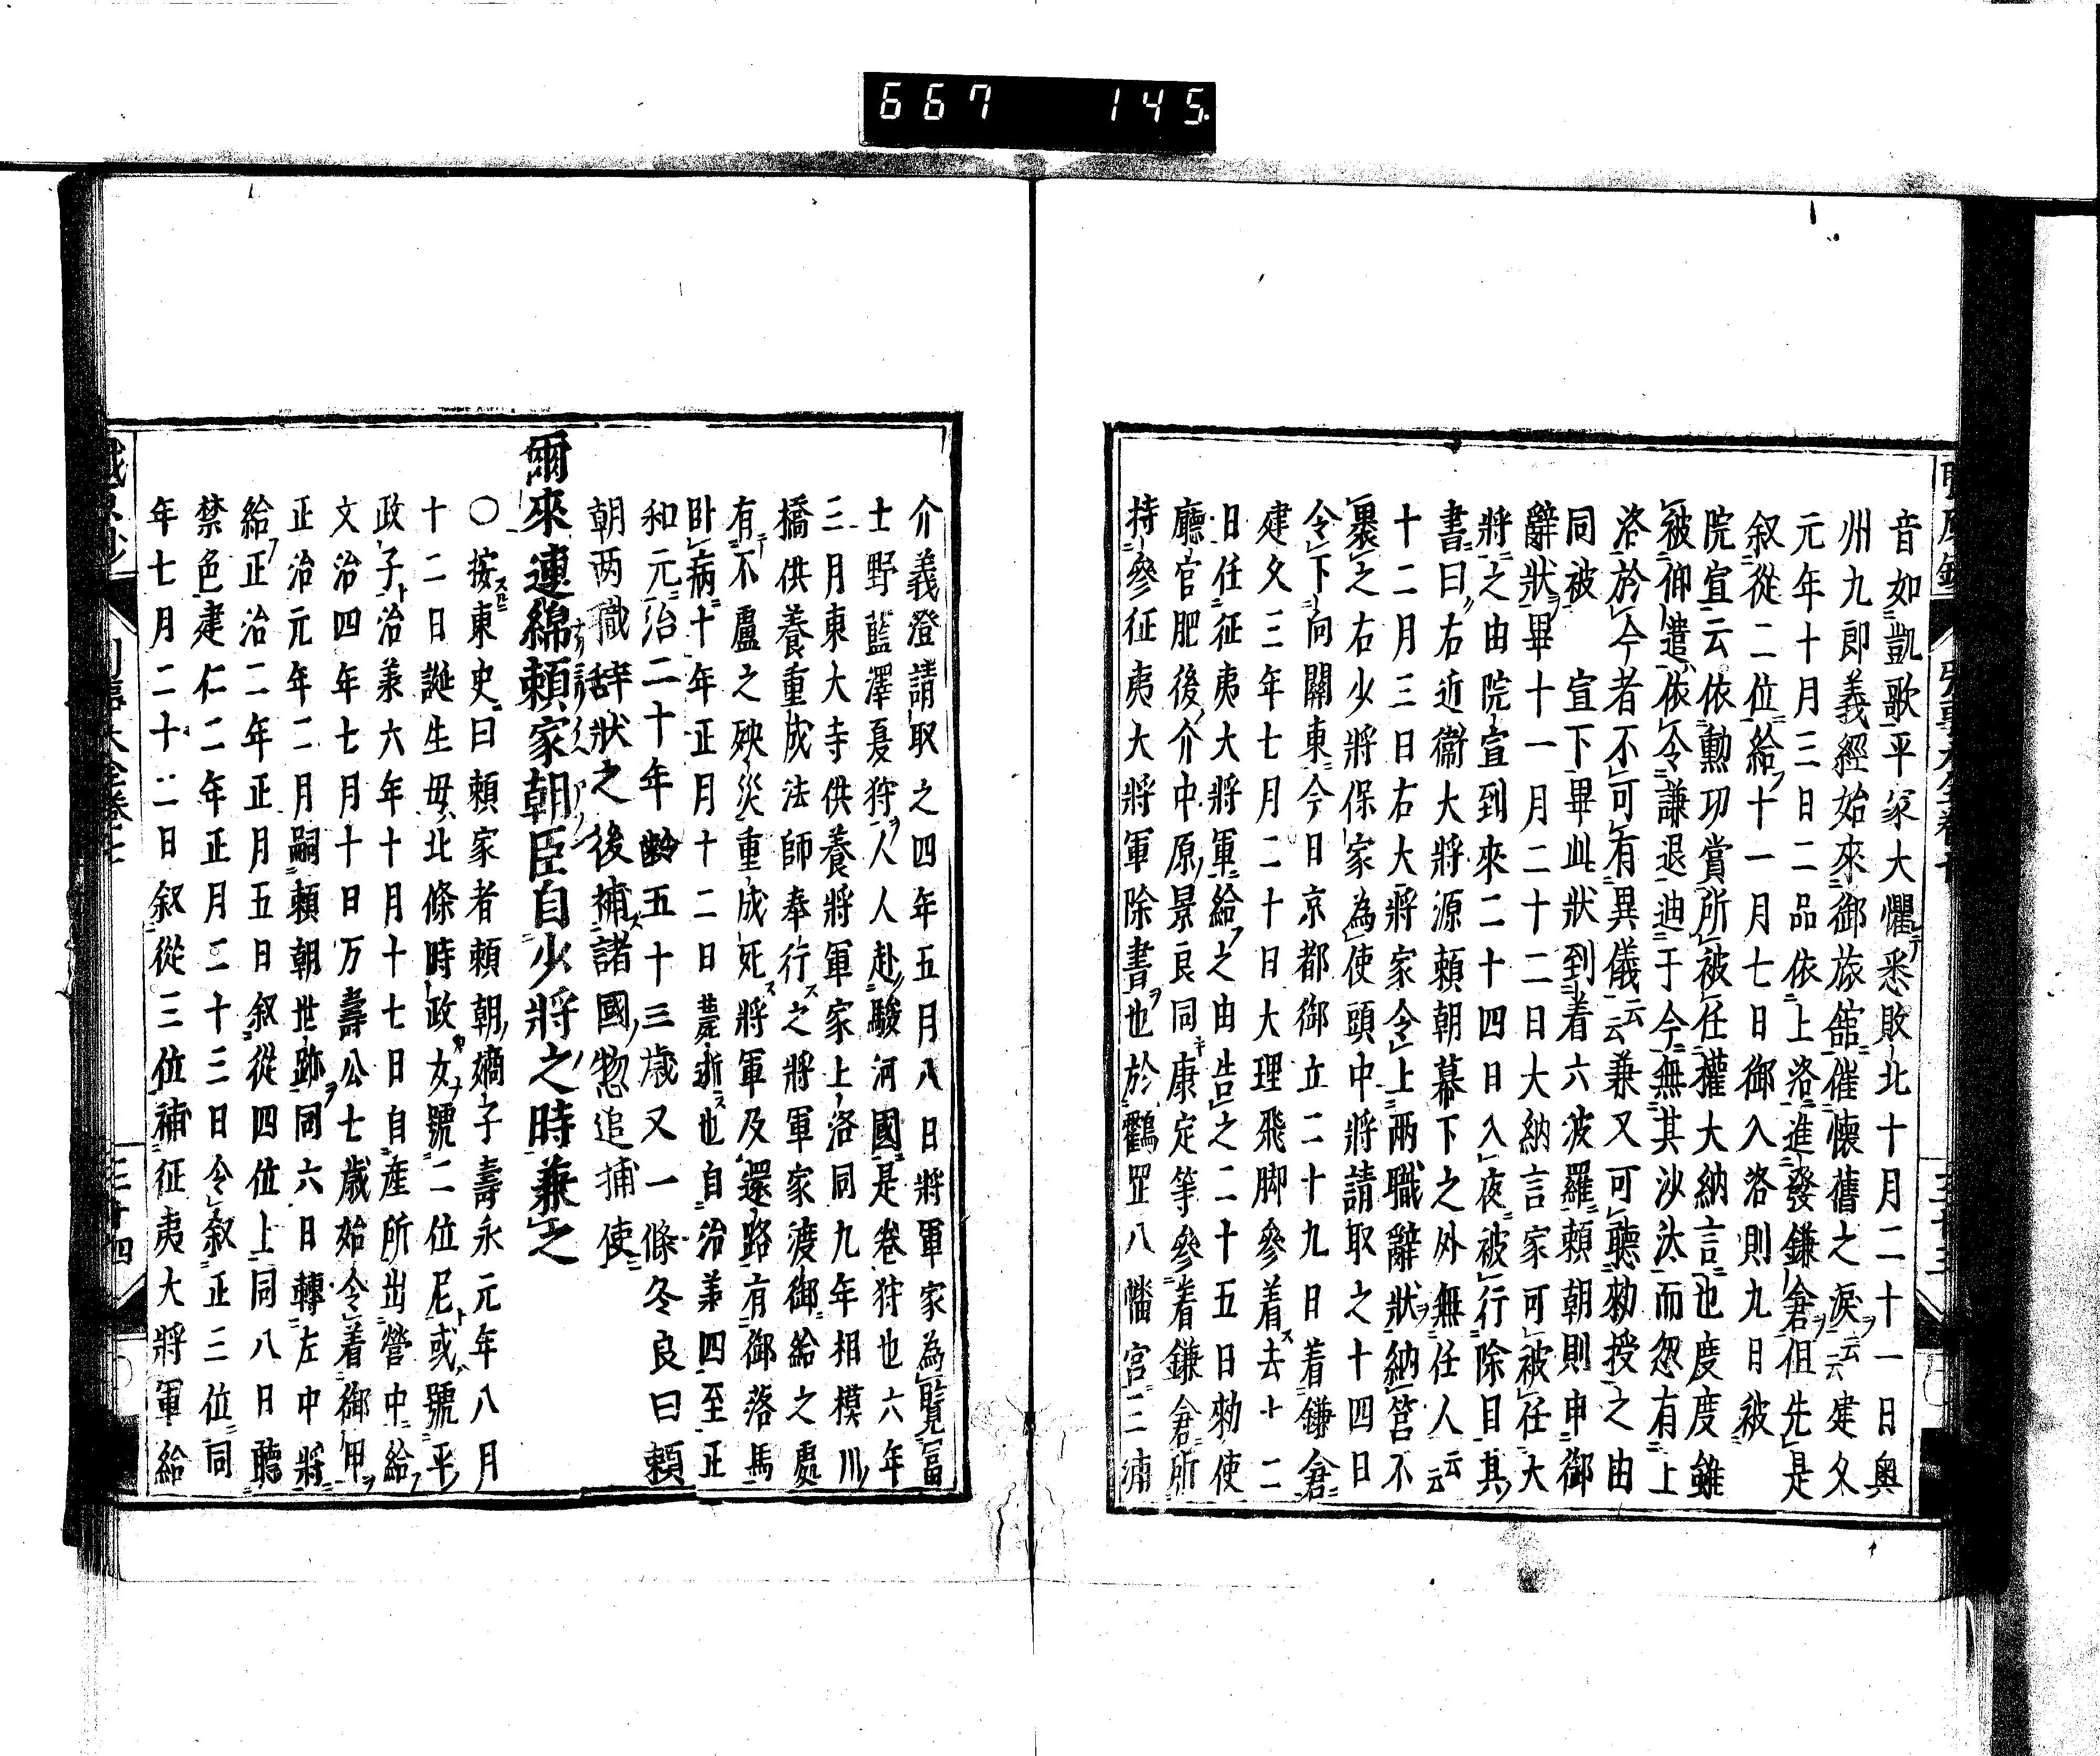 667 145
音如凱歌平家大懼悉敗北十月二十一日奥
州九郎義經始來御旅舘催懐舊之涙云云建久
元年十月三日二品依上洛進發鎌倉俎先是
叙從二位給十一月七日御入洛則九日被
院宣云依勲功賞所被任權大納言也度度雖
被仰遣依令謙退迪于今無其沙汰而忽有上
洛於今者不可有異儀云云兼又可聽勅授之由
同被宣下畢此狀到着六波羅頼朝則申御
辭狀畢十一月二十二日大納言家可被任大
將之由院宣到來二十四日入夜被行除目其
書曰右近衞大將源頼朝幕下之外無任人云云
十二月三日右大將家令上兩職辭狀納筥不
裹之右少將保家為使頭中將請取之十四日
令下向關東今日京都御立二十九日着鎌倉
建久三年七月二十日大理飛脚參着去十二
日任征夷大將軍給之由告之二十五日勅使
廳官肥後介中原景良同康定等參着鎌倉所
持參征夷大將軍除書也於鸖罡八幡宮三浦
介義澄請取之四年五月八日將軍家為覽富
士野藍澤夏狩人人赴駿河國是卷狩也六年
三月東大寺供養將軍家上洛同九年相模川
橋供養重成法師奉行之將軍家渡御給之處
有不盧之殃災重成死將軍及還路有御落馬
卧病十年正月十二日薨逝也自治羕四至正
和元治二十年齡五十三歳又一條冬良曰頼
朝两職辞狀之後補諸國惣追捕使
爾來連綿頼家朝臣自少將之時兼之
〇按東史曰頼家者頼朝嫡子壽永元年八月
十二日誕生母北條時政女號二位尼或號平
政子治羕六年十月十七日自産所出營中給
文治四年七月十日万壽公七歳始令着御甲
正治元年二月嗣頼朝世跡同六日轉左中將
給正治二年正月五日叙從四位上同八日聽
禁色建仁二年正月二十三日令叙正三位同
年七月二十二日叙從三位補征夷大將軍給